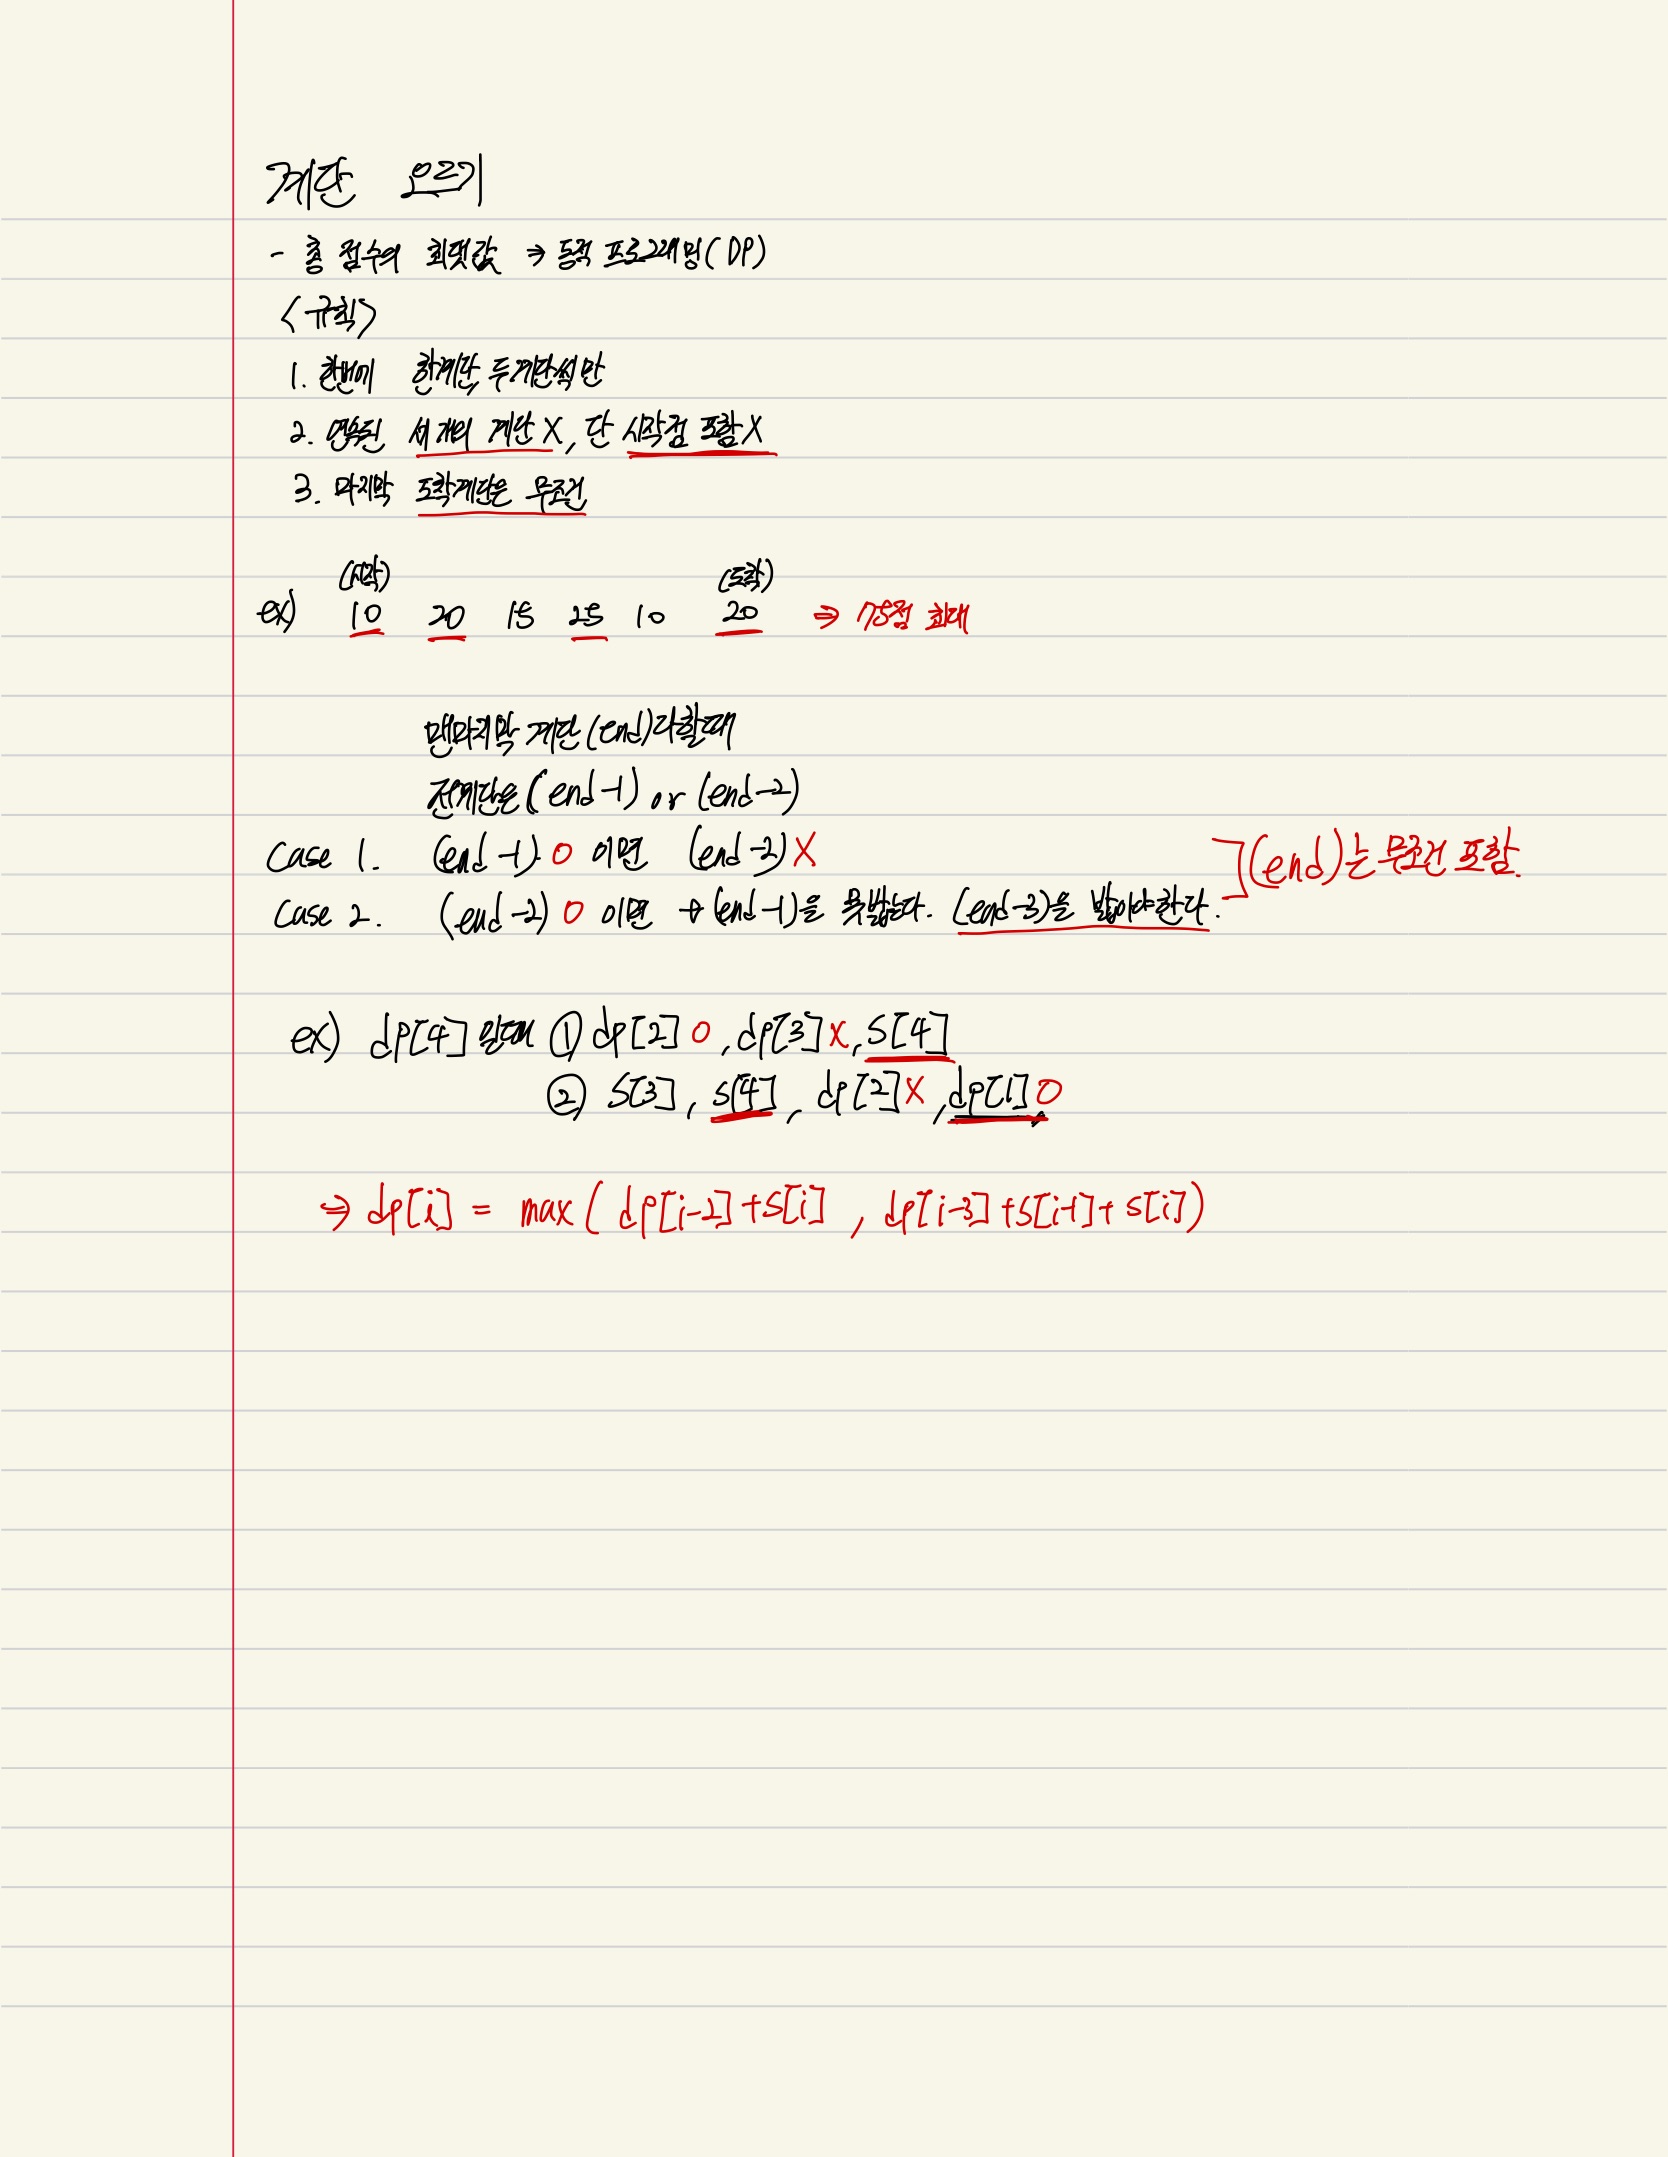 계단 오르기
- 총 점수의 최댓값 → 동적 프로그래밍(DP)
<규칙>
1. 한번에 한계단, 두계단씩만
2. 연속된 세개의 계단 X, 단 시작점 포함 X
3. 마지막 도착계단은 무조건
(시작) (도착)
ex) 10 20 15 25 10 20 ⇒ 75점 최대
맨마지막 계단(end)다할때
전계단은(end-1) or (end-2)
Case 1. (end-1) O 이면 (end-2) X
Case 2. (end-2) O 이면 → (end-1)을 못밟는다. (end-3)을 밟아야한다. ](end)는 무조건 포함.
ex) dp[4] 일때 ① dp[2] O, dp[3] X, S[4]
② S[3], S[4], dp[2] X, dp[1] O
⇒ dp[i] = max( dp[i-2]+S[i] , dp[i-3]+S[i-1]+S[i])